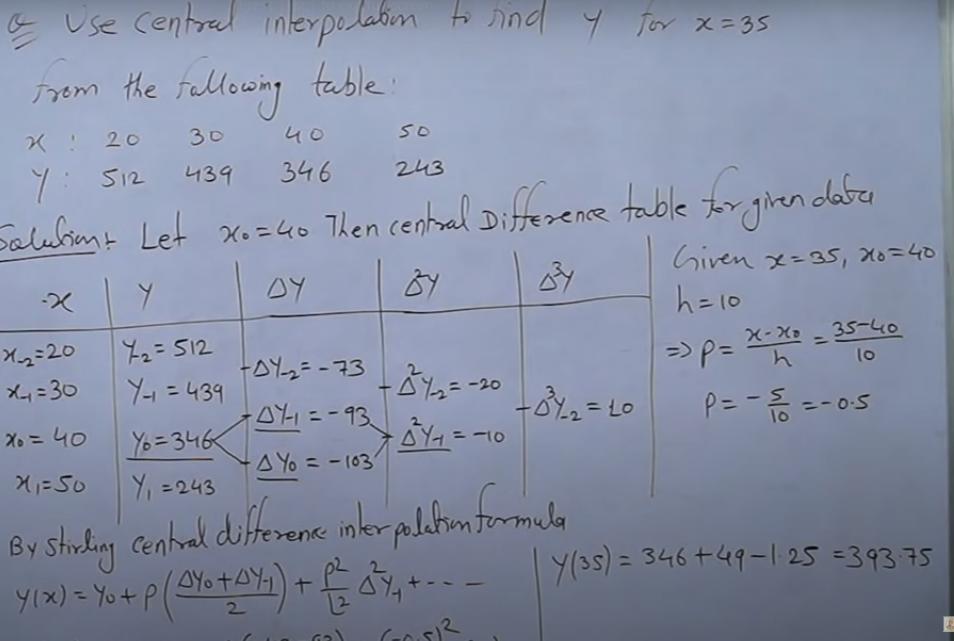 Q Use Central interpolation to find y for x=35
from the following table:
x : 20 30 40 50
y : 512 439 346 243
Solution:- Let x₀=40 Then central Difference table for given data
x y Δy Δ²y Δ³y
x₋₂=20 y₋₂=512
Δy₋₂=-73
x₋₁=30 y₋₁=439 Δ²y₋₂=-20
Δy₋₁=-93 Δ³y₋₂=10
x₀=40 y₀=346 Δ²y₋₁=-10
Δy₀=-103
x₁=50 y₁=243
Given x=35, x₀=40
h=10
⇒ p = (x-x₀)/h = (35-40)/10
p = -5/10 = -0.5
By Stirling central difference interpolation formula
y(x) = y₀+p((Δy₀+Δy₋₁)/2)+p²/∟2 Δ²y₋₁+---
y(35) = 346+49-1.25 = 393.75